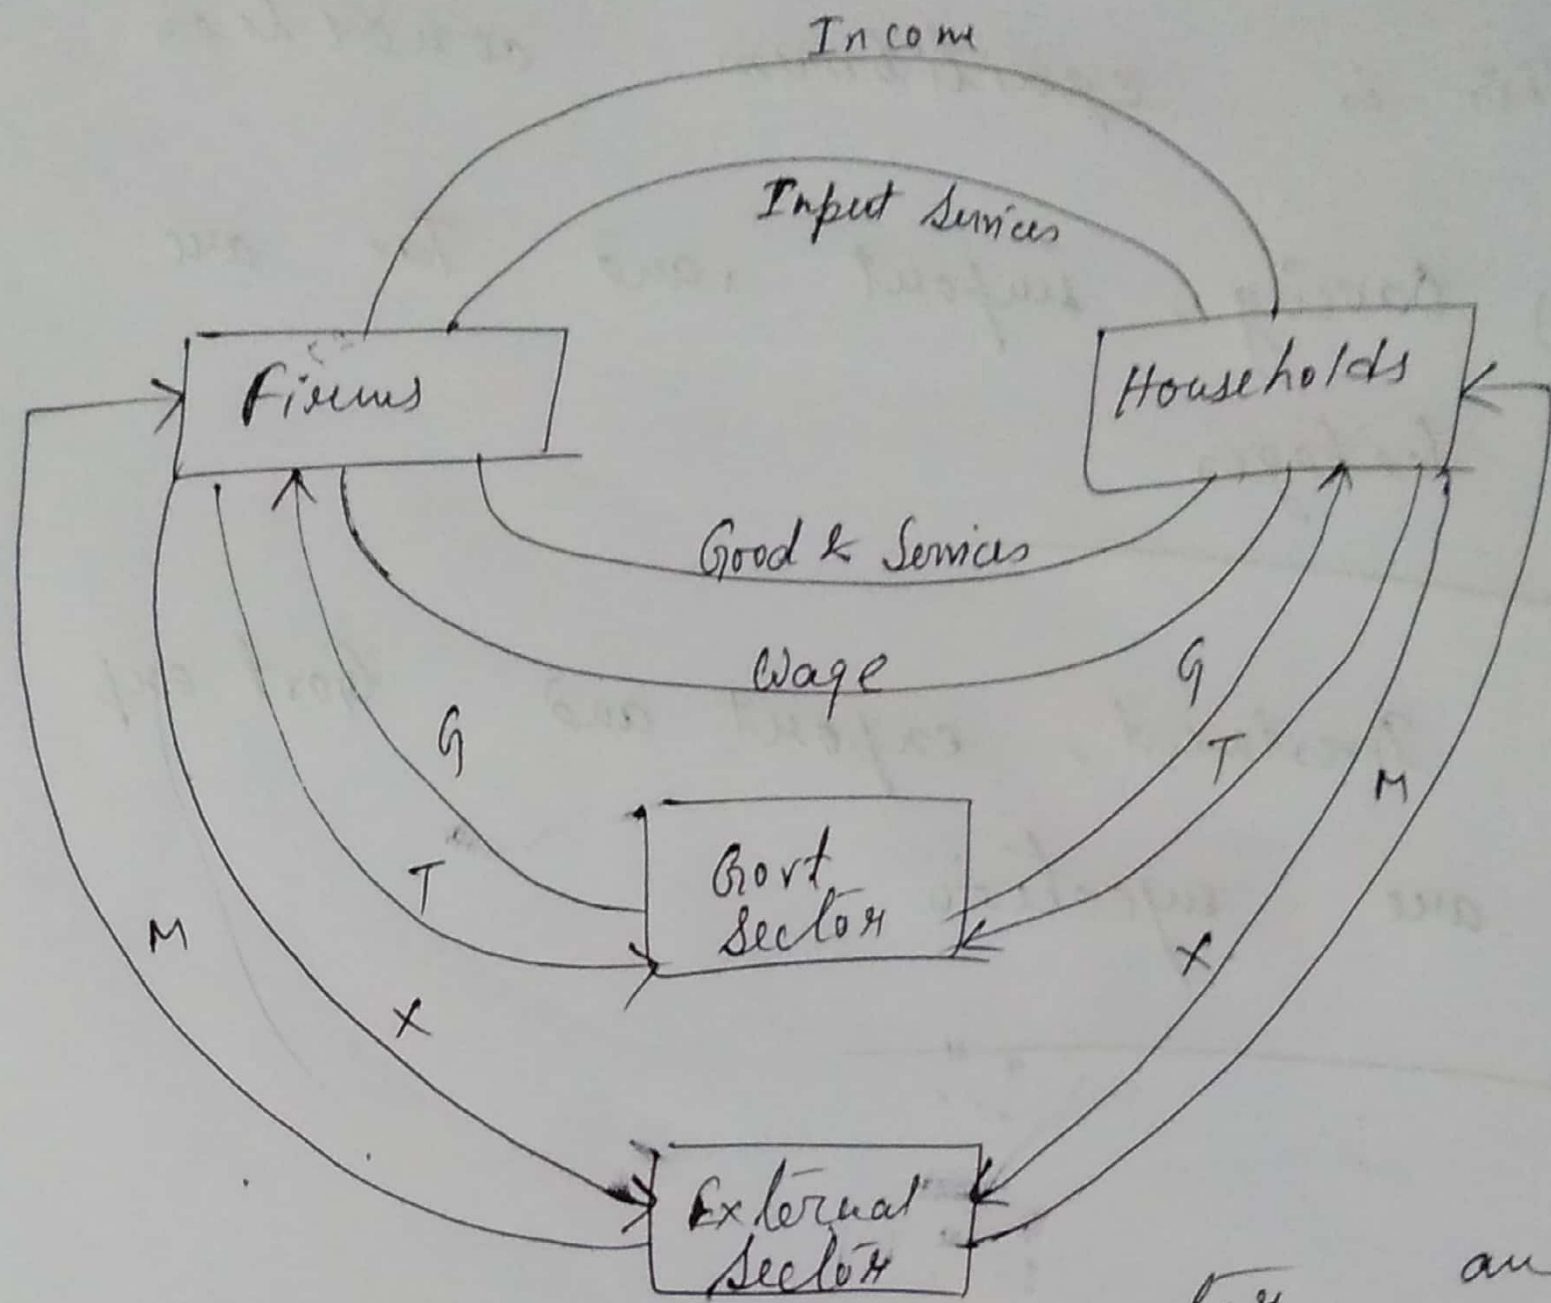 Income
Input Services
Firms
Households
Good & Services
Wage
G
G
T
T
M
M
X
X
Govt
Sector
External
Sector